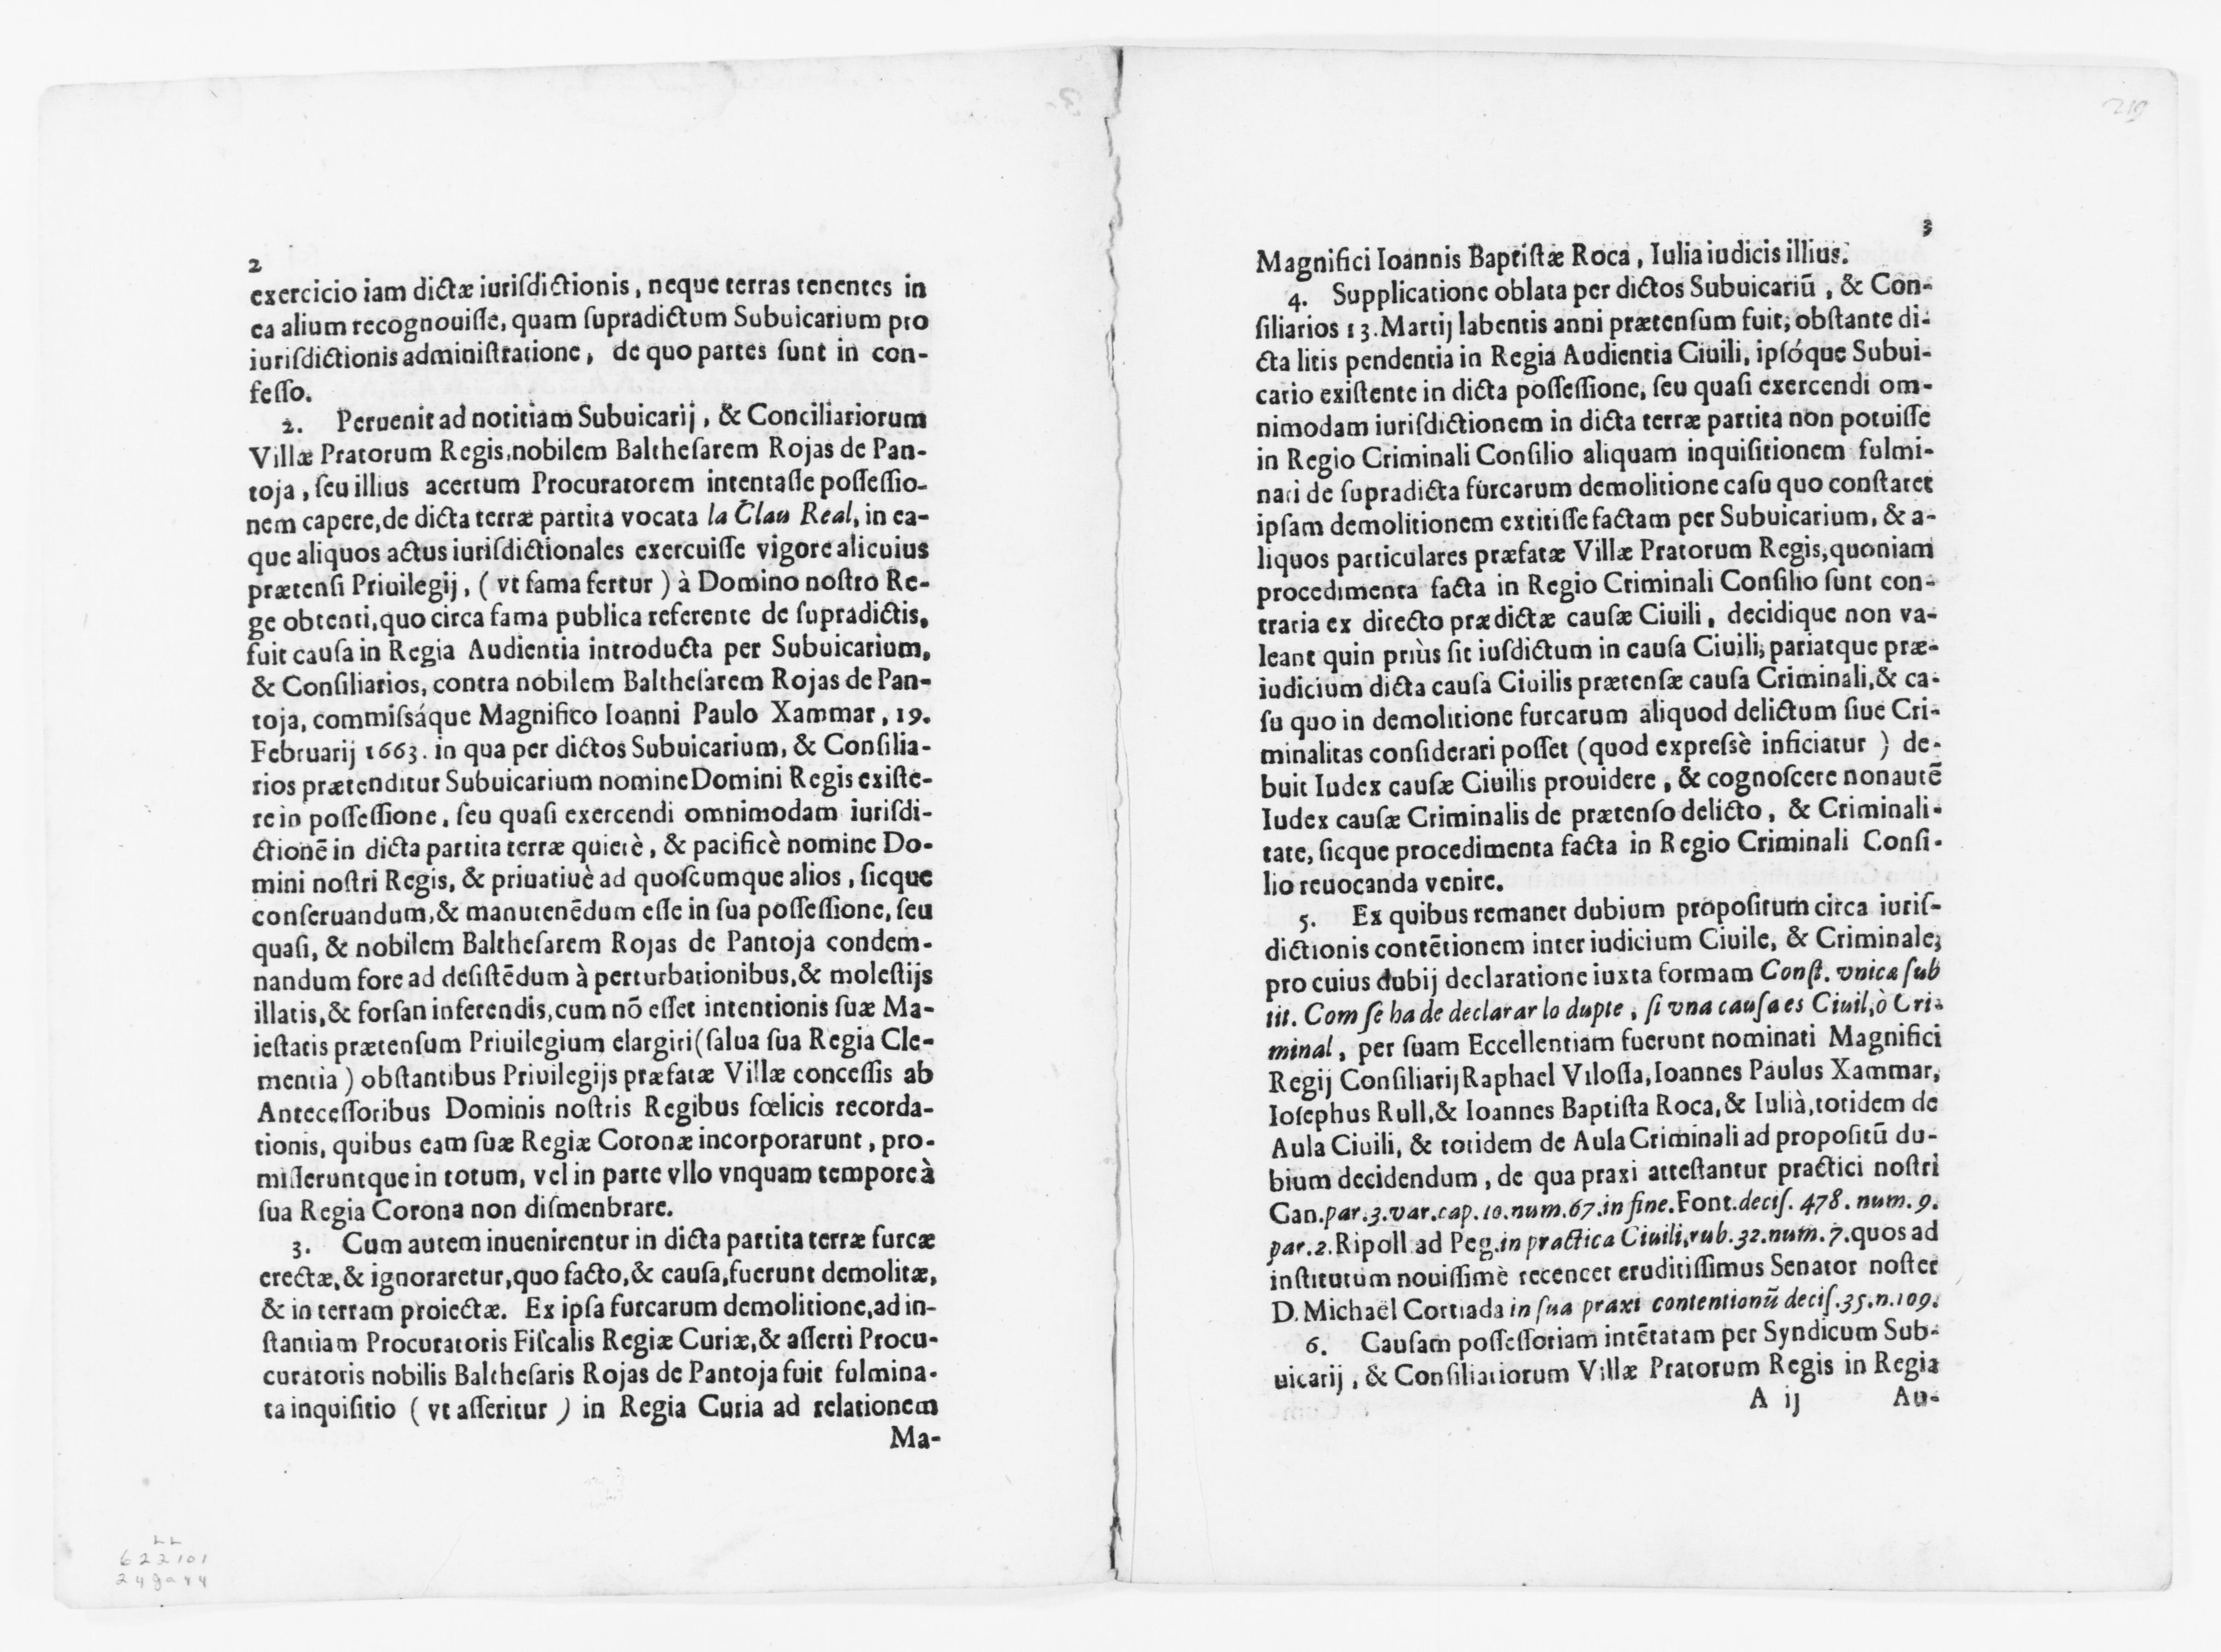 2
exercicio iam dictæ iuriſdictionis, neque terras tenentes in
ea alium recognouiſſe, quam ſupradictum Subuicarium pro
iuriſdictionis adminiſtratione, de quo partes ſunt in con-
feſſo.
2. Peruenit ad notitiam Subuicarij, & Conciliariorum
Villæ Pratorum Regis, nobilem Baltheſarem Rojas de Pan-
toja, ſeu illius acertum Procuratorem intentaſſe poſſeſſio-
nem capere, de dicta terræ partita vocata la Clau Real, in ea-
que aliquos actus iuriſdictionales exercuiſſe vigore alicuius
prætenſi Priuilegij, ( vt fama fertur ) à Domino noſtro Re-
ge obtenti, quo circa fama publica referente de ſupradictis,
fuit cauſa in Regia Audientia introducta per Subuicarium,
& Conſiliarios, contra nobilem Baltheſarem Rojas de Pan-
toja, commiſsáque Magnifico Ioanni Paulo Xammar, 19.
Februarij 1663. in qua per dictos Subuicarium, & Conſilia-
rios prætenditur Subuicarium nomine Domini Regis exiſte-
re in poſſeſſione, ſeu quaſi exercendi omnimodam iuriſdi-
ctionē in dicta partita terræ quietè, & pacificè nomine Do-
mini noſtri Regis, & priuatiuè ad quoſcumque alios, ſicque
conſeruandum, & manutenēdum eſſe in ſua poſſeſſione, ſeu
quaſi, & nobilem Baltheſarem Rojas de Pantoja condem-
nandum fore ad deſiſtēdum à perturbationibus, & moleſtijs
illatis, & forſan inferendis, cum nō eſſet intentionis ſuæ Ma-
ieſtatis prætenſum Priuilegium elargiri (ſalua ſua Regia Cle-
mentia ) obſtantibus Priuilegijs præfatæ Villæ conceſſis ab
Anteceſſoribus Dominis noſtris Regibus fœlicis recorda-
tionis, quibus eam ſuæ Regiæ Coronæ incorporarunt, pro-
miſſeruntque in totum, vel in parte vllo vnquam tempore à
ſua Regia Corona non diſmenbrare.
3. Cum autem inuenirentur in dicta partita terræ furcæ
erectæ, & ignoraretur, quo facto, & cauſa, fuerunt demolitæ,
& in terram proiectæ. Ex ipſa furcarum demolitione, ad in-
ſtantiam Procuratoris Fiſcalis Regiæ Curiæ, & aſſerti Procu-
curatoris nobilis Baltheſaris Rojas de Pantoja fuit fulmina-
ta inquiſitio ( vt aſſeritur ) in Regia Curia ad relationem
Ma-
622101
219
3
Magnifici Ioannis Baptiſtæ Roca, Iulia iudicis illius.
4. Supplicatione oblata per dictos Subuicariū, & Con-
ſiliarios 13. Martij labentis anni prætenſum fuit, obſtante di-
cta litis pendentia in Regia Audientia Ciuili, ipſóque Subui-
cario exiſtente in dicta poſſeſſione, ſeu quaſi exercendi om-
nimodam iuriſdictionem in dicta terræ partita non potuiſſe
in Regio Criminali Conſilio aliquam inquiſitionem fulmi-
nari de ſupradicta furcarum demolitione caſu quo conſtaret
ipſam demolitionem extitiſſe factam per Subuicarium, & a-
liquos particulares præfatæ Villæ Pratorum Regis, quoniam
procedimenta facta in Regio Criminali Conſilio ſunt con-
traria ex directo prædictæ cauſæ Ciuili, decidique non va-
leant quin priùs ſit iuſdictum in cauſa Ciuili, pariatque præ-
iudicium dicta cauſa Ciuilis prætenſæ cauſa Criminali, & ca-
ſu quo in demolitione furcarum aliquod delictum ſiue Cri-
minalitas conſiderari poſſet (quod expreſsè inficiatur ) de-
buit Iudex cauſæ Ciuilis prouidere, & cognoſcere non autē
Iudex cauſæ Criminalis de prætenſo delicto, & Criminali-
tate, ſicque procedimenta facta in Regio Criminali Conſi-
lio reuocanda venire.
5. Ex quibus remanet dubium propoſitum circa iuriſ-
dictionis contētionem inter iudicium Ciuile, & Criminale,
pro cuius dubij declaratione iuxta formam Conſt. vnicæ ſub
tit. Com ſe ha de declarar lo dupte, ſi vna cauſa es Ciuil, ò Cri-
minal, per ſuam Eccellentiam fuerunt nominati Magnifici
Regij Conſiliarij Raphael Viloſſa, Ioannes Paulus Xammar,
Ioſephus Rull, & Ioannes Baptiſta Roca, & Iulià, totidem de
Aula Ciuili, & totidem de Aula Criminali ad propoſitū du-
bium decidendum, de qua praxi atteſtantur practici noſtri
Can. par. 3. var. cap. 10. num. 67. in fine. Font. deciſ. 478. num. 9.
par. 2. Ripoll ad Peg. in practica Ciuili, rub. 32. num. 7. quos ad
inſtitutum nouiſſimè recencet eruditiſſimus Senator noſter
D. Michaël Cortiada in ſua praxi contentionū deciſ. 35. n. 109.
6. Cauſam poſſeſſoriam intētatam per Syndicum Sub-
uicarij, & Conſiliariorum Villæ Pratorum Regis in Regia
A ij Au-